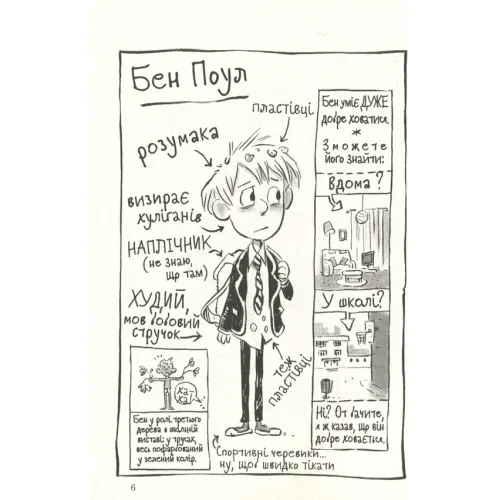 Бен Поул
пластівці
розумака
визирає
хуліганів
НАПЛІЧНИК
(не знаю,
що там)
ХУДИЙ,
мов бобовий
стручок
теж
пластівці
Спортивні черевики...
ну, щоб швидко тікати
ха-
ха
Бен у ролі третього
дерева в шкільній
виставі: у трусах,
весь пофарбований
у зелений колір.
Бен уміє ДУЖЕ
добре ховатися.
*
Зможете
його знайти:
Вдома?
У школі?
Ні? От бачите,
я ж казав, що він
добре ховається.
6